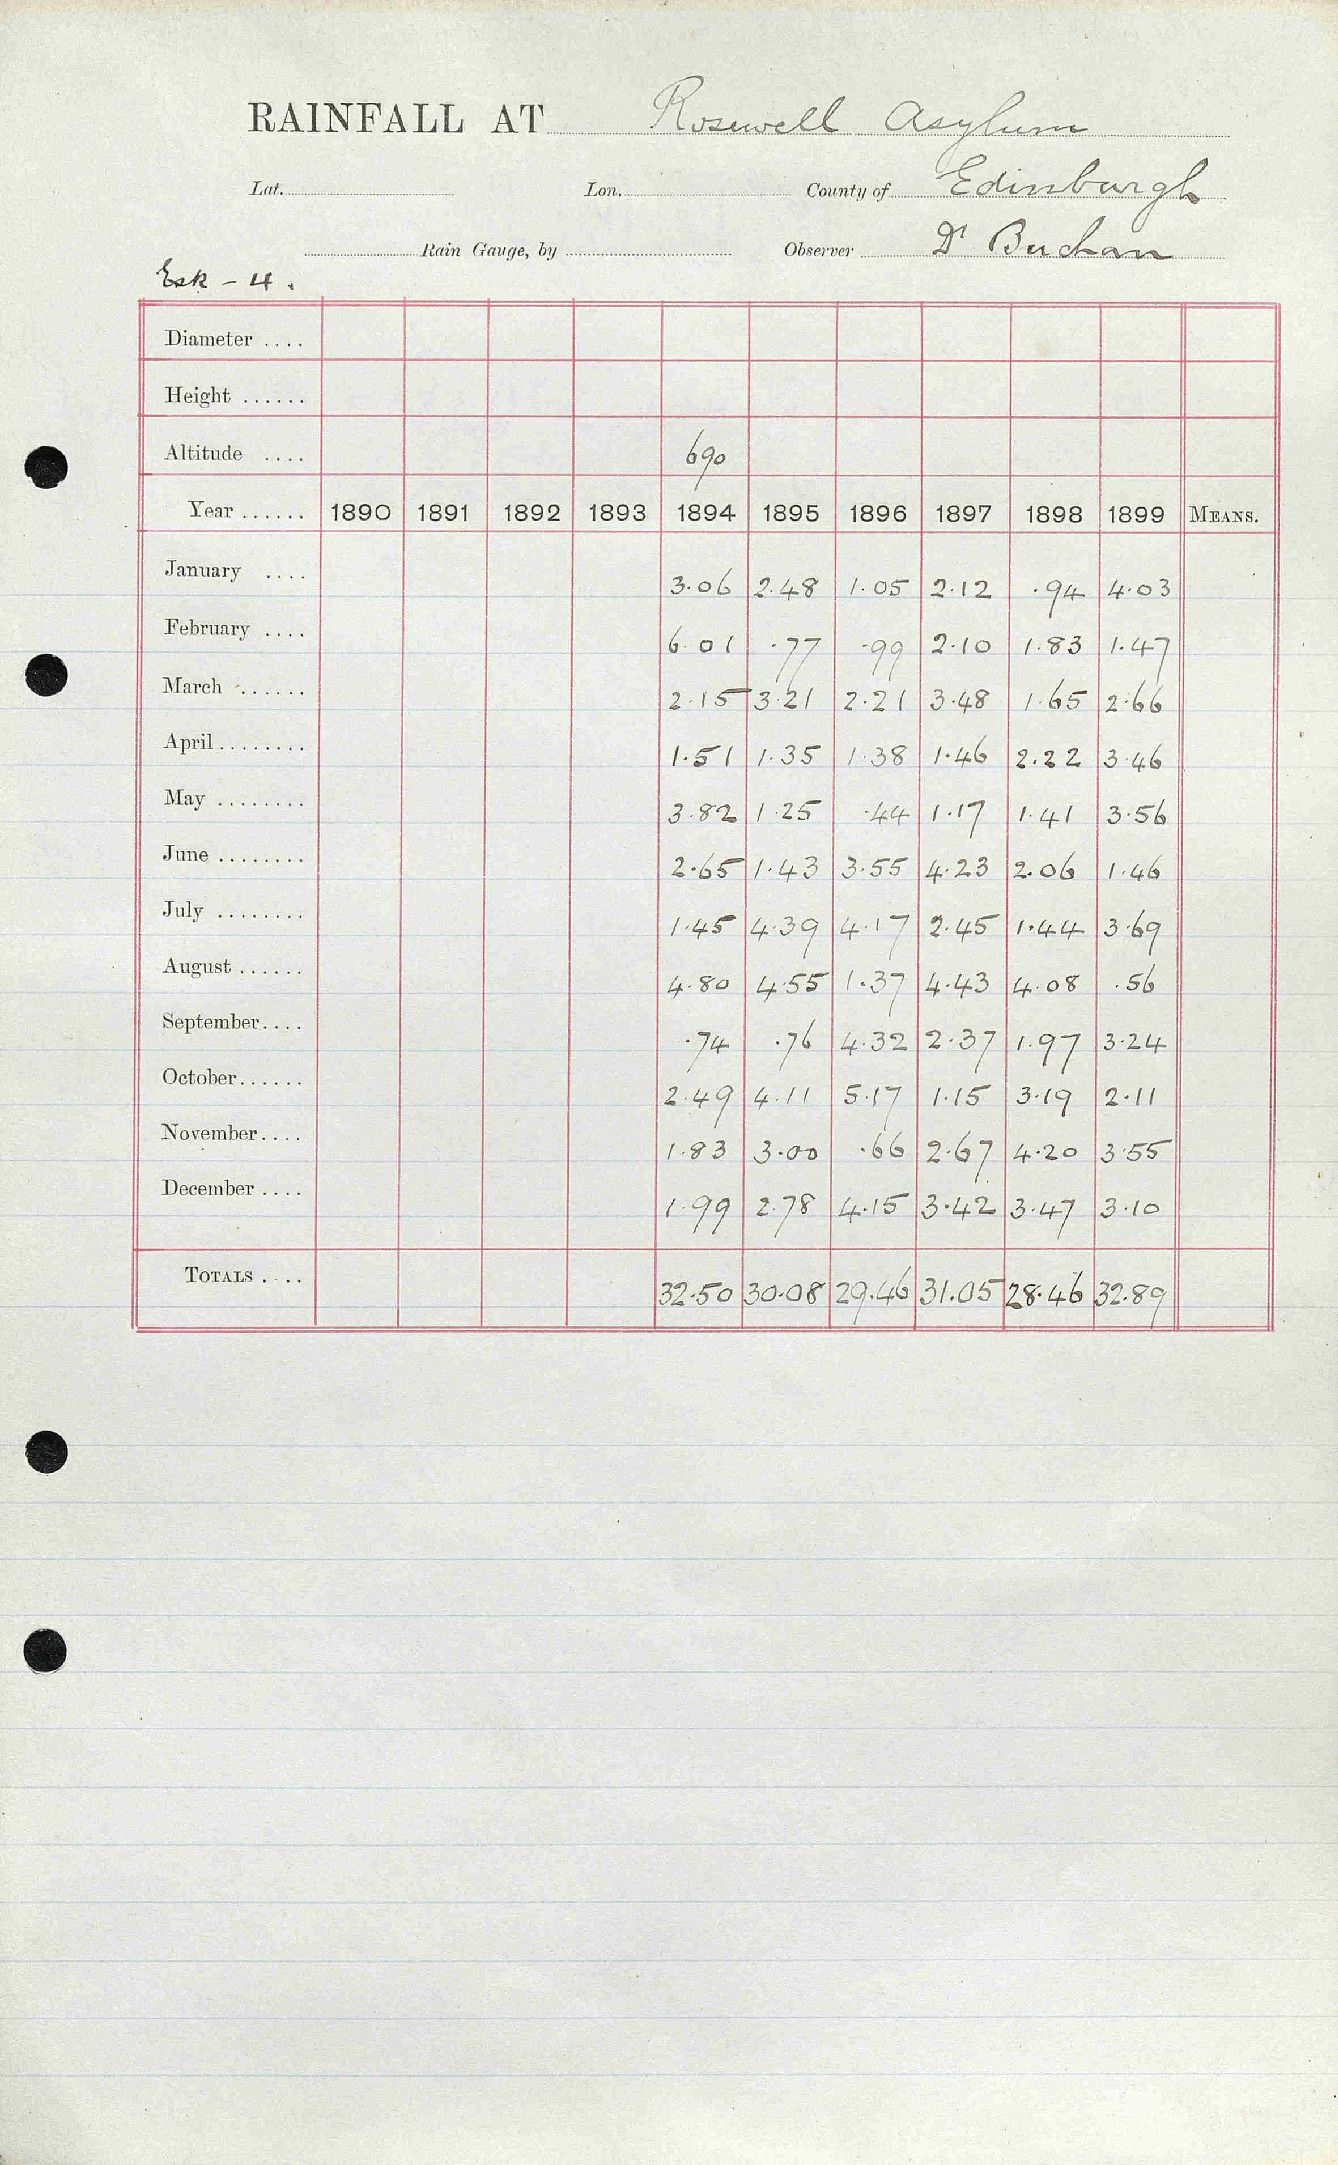 RAINFALL AT Rosewell Asylum
Lat. Lon. County of Edinburgh
Rain Gauge, by Observer Dr Buchan
Esk - 4.
Diameter ....
Height ......
Altitude .... 690
Year ...... 1890 1891 1892 1893 1894 1895 1896 1897 1898 1899 MEANS.
January .... 3.06 2.48 1.05 2.12 .94 4.03
February .... 6.01 .77 .99 2.10 1.83 1.47
March ...... 2.15 3.21 2.21 3.48 1.65 2.66
April ........ 1.51 1.35 1.38 1.46 2.22 3.46
May ........ 3.82 1.25 .44 1.17 1.41 3.56
June ........ 2.65 1.43 3.55 4.23 2.06 1.46
July ........ 1.45 4.39 4.17 2.45 1.44 3.69
August ...... 4.80 4.55 1.37 4.43 4.08 .56
September.... .74 .76 4.32 2.37 1.97 3.24
October...... 2.49 4.11 5.17 1.15 3.19 2.11
November.... 1.83 3.00 .66 2.67 4.20 3.55
December .... 1.99 2.78 4.15 3.42 3.47 3.10
TOTALS .... 32.50 30.08 29.46 31.05 28.46 32.89